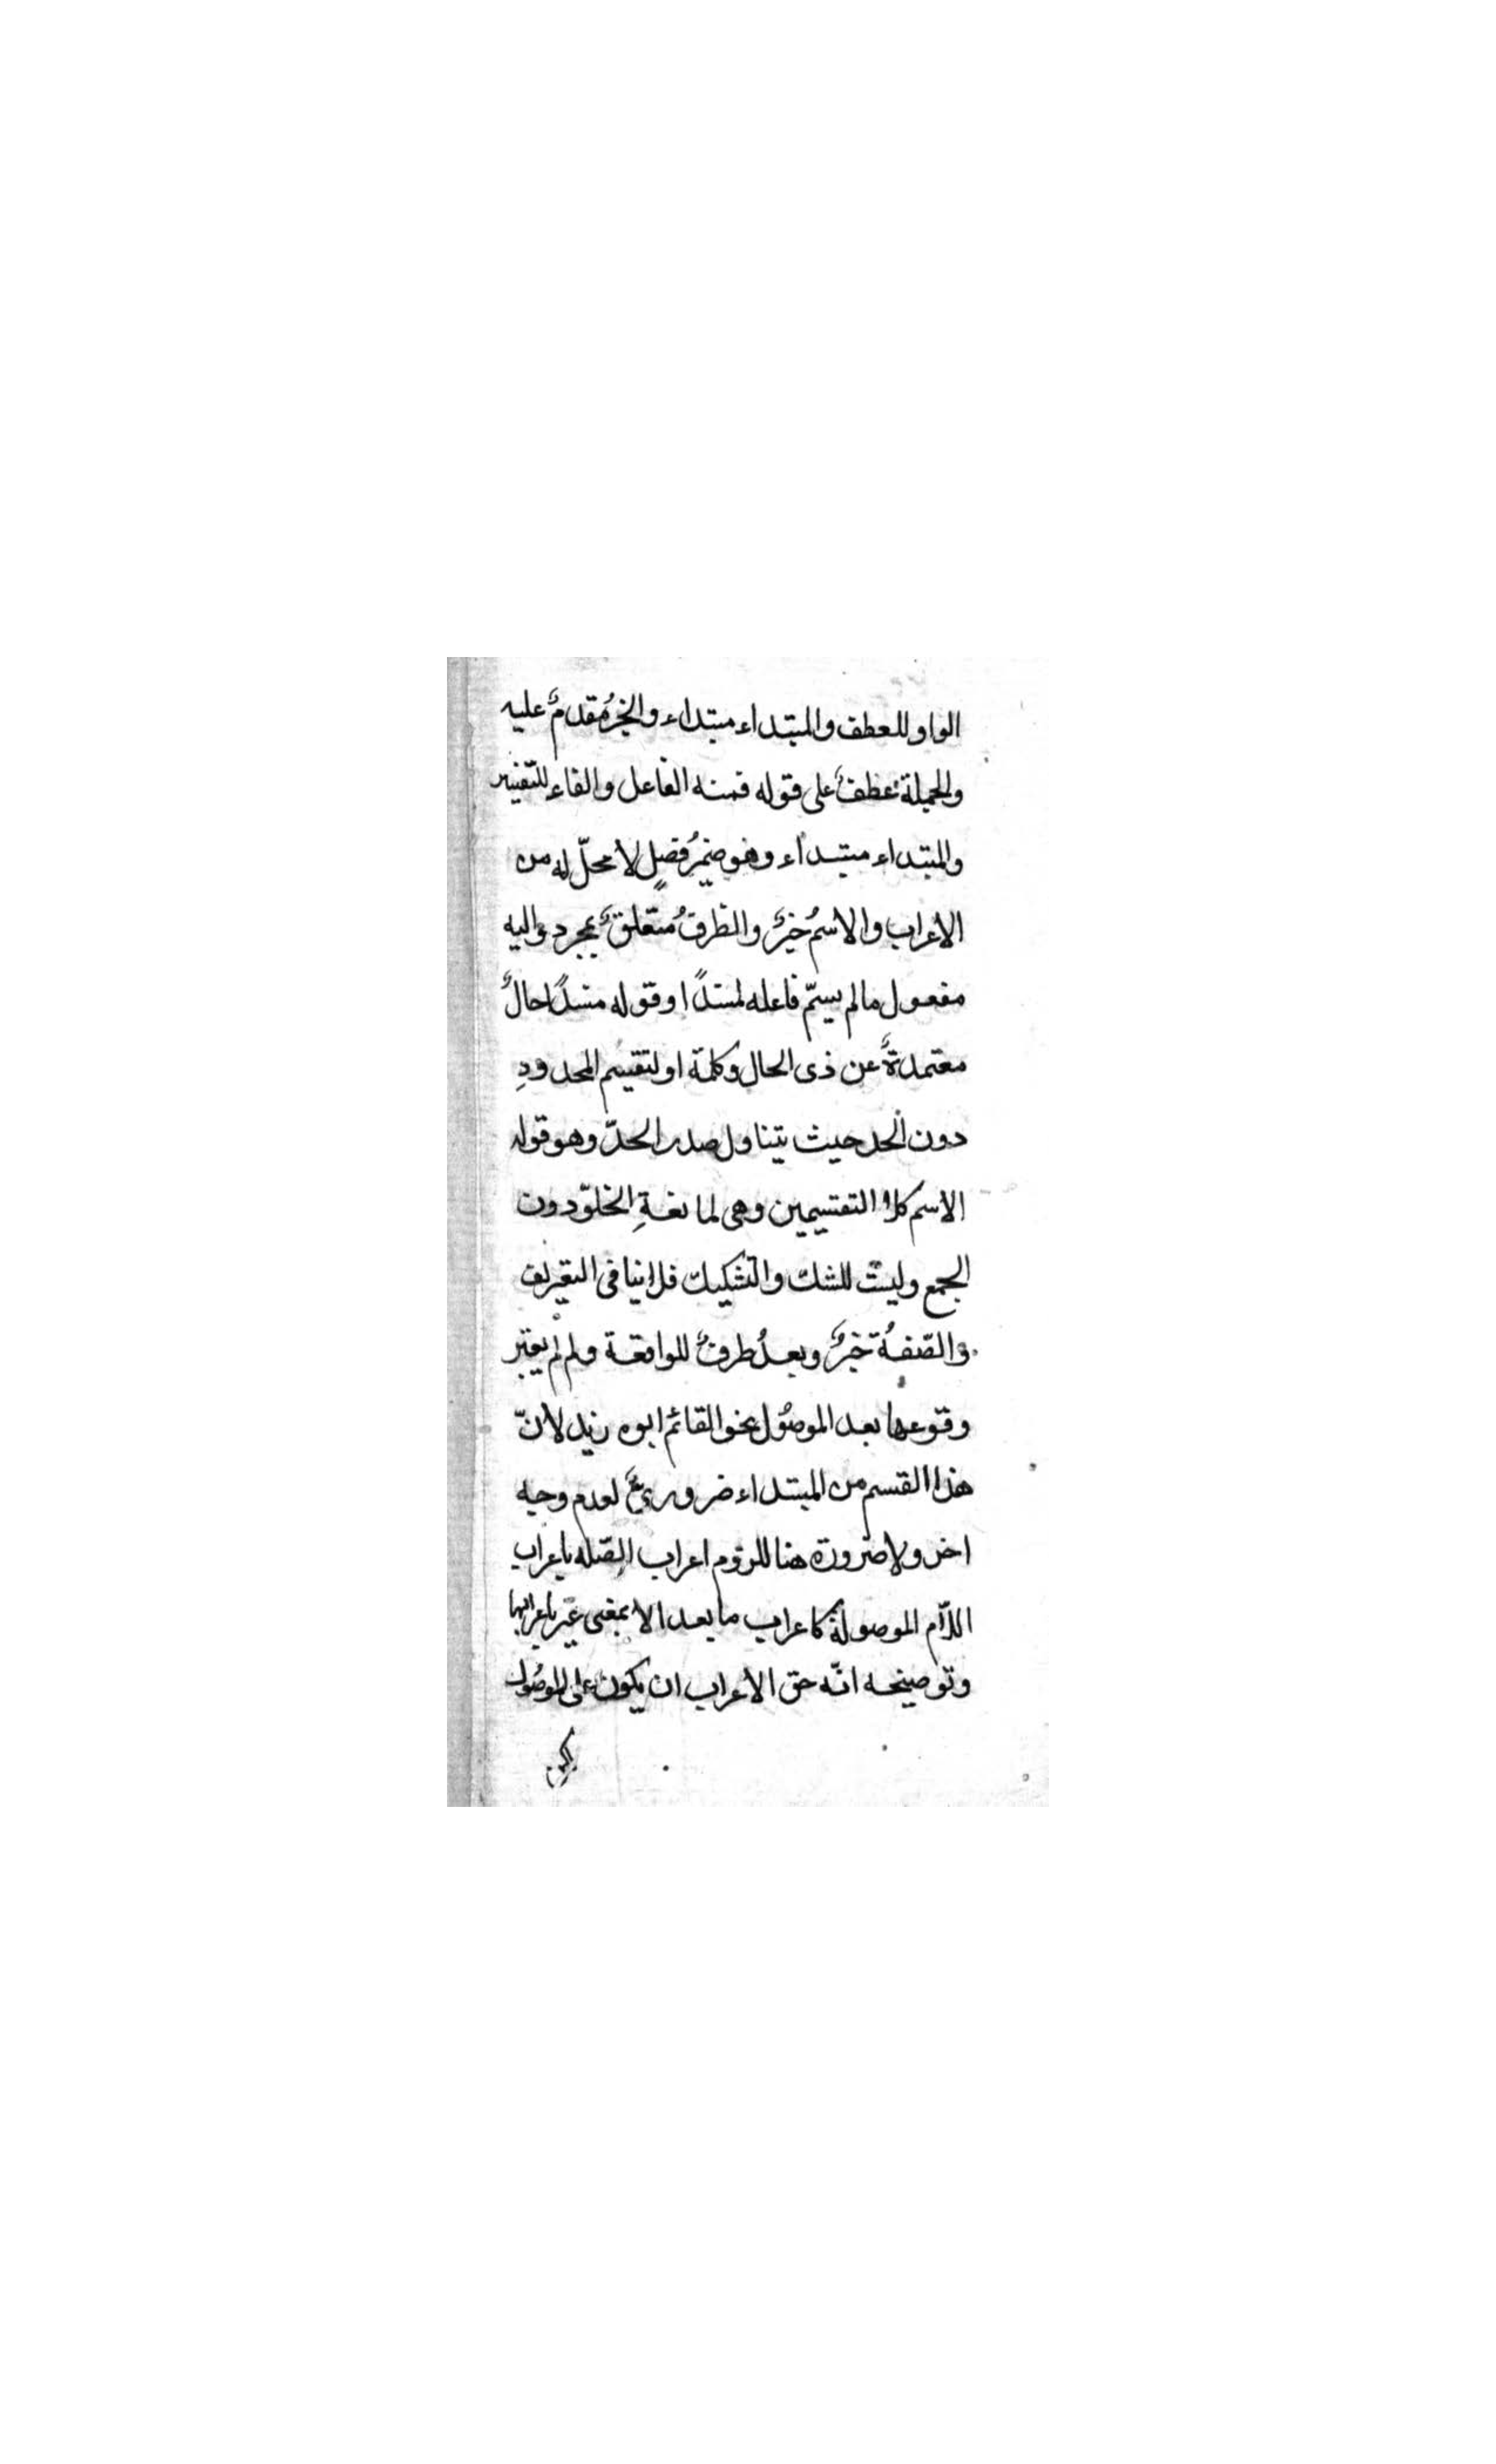 الواو للعطف والمبتداء مبتداء والخبرُ مقدمٌ عليه
والجملة عطفٌ على قوله فمنه الفاعل والفاء للتفسير
والمبتداء مبتداء وهو ضميرُ فصلٍ لا محلّ له من
الاعراب والاسمُ خبرٌ والظرفُ متعلقٌ بمجرد واليه
مفعول مالم يسمّ فاعله لمسندًا وقوله مسندًا حالٌ
معتمدةٌ عن ذى الحال وكلمة او لتقسيم المحدودِ
دون الحد حيث يتناول صدر الحدّ وهو قوله
الاسم كلا التقسيمين وهى لمانعةِ الخلوّ دون
الجمع وليست للشك والتشكيك فلا ينافى التعريف
والصّفةُ خبرٌ وبعدُ ظرفٌ للواقعة ولم يعتبر
وقوعها بعد الموصُول نحو القائم ابوه زيد لانّ
هذا القسم من المبتداء ضرورىٌّ لعدم وجه
اخر ولا ضرورة هنا للزوم اعراب الصّله باعراب
اللّام الموصولة كاعراب ما بعد الا بمعنى غير باعرابها
وتوضيحه انّه حق الاعراب ان يكون على الموصُول